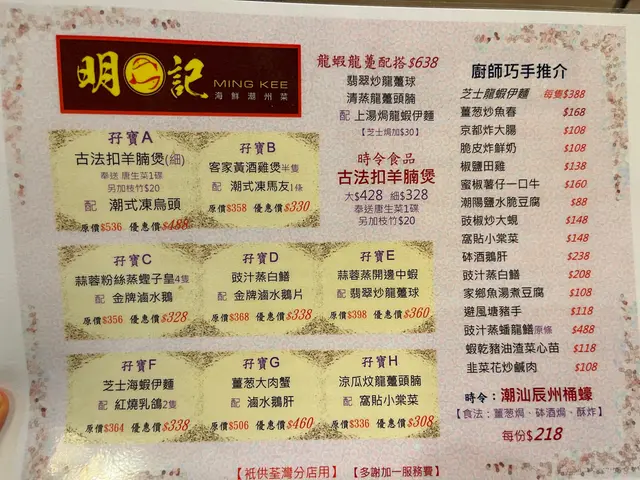 明記
MING KEE
海鮮潮州菜
孖寶A
古法扣羊腩煲(細)
奉送 唐生菜1碟
另加枝竹$20
配 潮式凍烏頭
原價$536 優惠價$488
孖寶B
客家黃酒雞煲半隻
配 潮式凍馬友1條
原價$358 優惠價$330
孖寶C
蒜蓉粉絲蒸蟶子皇4隻
配 金牌滷水鵝
原價$356 優惠價$328
孖寶D
豉汁蒸白鱔
配 金牌滷水鵝片
原價$368 優惠價$338
孖寶E
蒜蓉蒸開邊中蝦
配 翡翠炒龍躉球
原價$398 優惠價$360
孖寶F
芝士海蝦伊麵
配 紅燒乳鴿2隻
原價$364 優惠價$338
孖寶G
薑葱大肉蟹
配 滷水鵝肝
原價$506 優惠價$460
孖寶H
涼瓜炆龍躉頭腩
配 窩貼小棠菜
原價$336 優惠價$308
龍蝦龍躉配搭$638
翡翠炒龍躉球
清蒸龍躉頭腩
配 上湯焗龍蝦伊麵
【芝士焗加$30】
時令食品
古法扣羊腩煲
大$428 細$328
奉送唐生菜1碟
另加枝竹$20
廚師巧手推介
芝士龍蝦伊麵 每隻$388
薑葱炒魚春 $168
京都炸大腸 $108
脆皮炸鮮奶 $108
椒鹽田雞 $138
蜜椒薯仔一口牛 $160
潮陽鹽水脆豆腐 $88
豉椒炒大蜆 $148
窩貼小棠菜 $148
砵酒鵝肝 $238
豉汁蒸白鱔 $208
家鄉魚湯煮豆腐 $108
避風塘豬手 $118
豉汁蒸蟠龍鱔原條 $488
蝦乾豬油渣菜心苗 $118
韭菜花炒鹹肉 $108
時令：潮汕辰州桶蠔
【食法：薑葱焗、砵酒焗、酥炸】
每份$218
【祇供荃灣分店用】【多謝加一服務費】